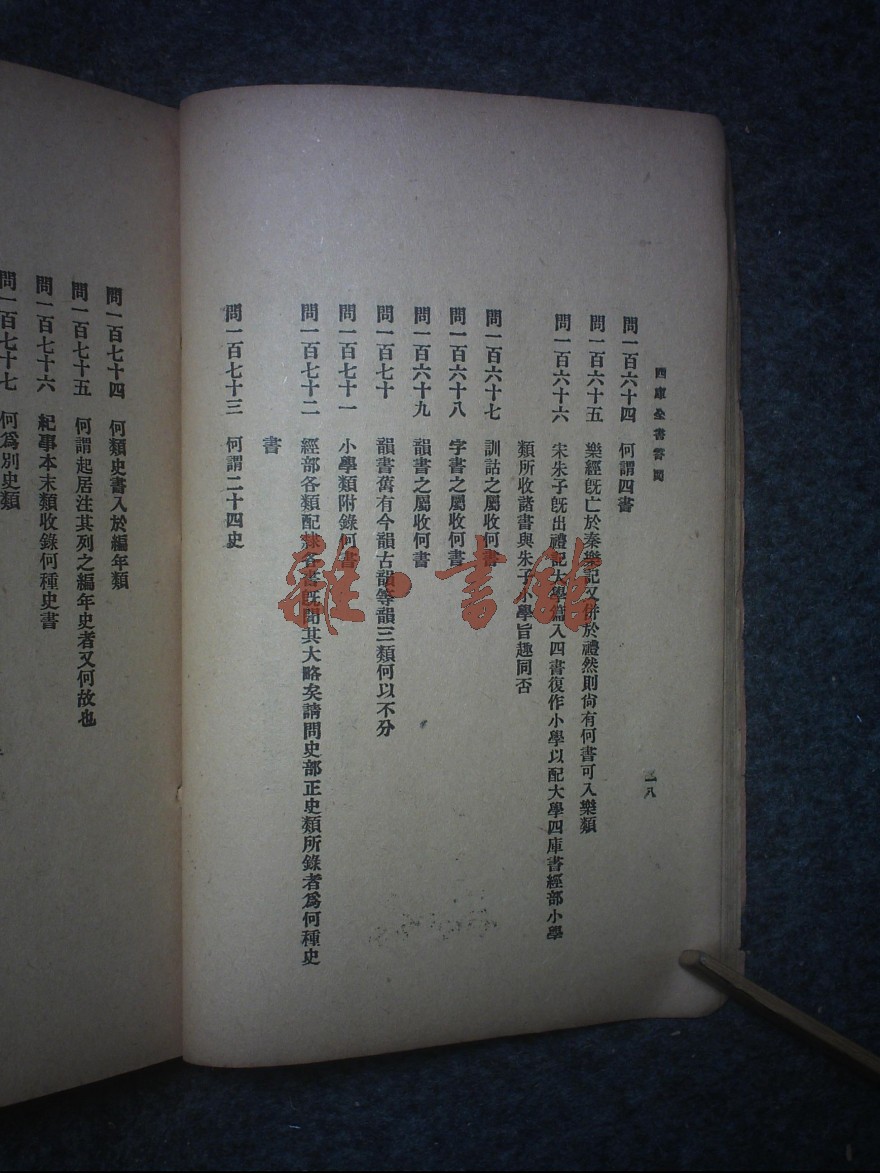 四庫全書答問
一八
問一百六十四　何謂四書
問一百六十五　樂經旣亡於秦樂記又併於禮然則尙有何書可入樂類
問一百六十六　宋朱子旣出禮記大學篇入四書復作小學以配大學四庫書經部小學
類所收諸書與朱子小學旨趣同否
問一百六十七　訓詁之屬收何書
問一百六十八　字書之屬收何書
問一百六十九　韻書之屬收何書
問一百七十　韻書舊有今韻古韻等韻三類何以不分
問一百七十一　小學類附錄何書
問一百七十二　經部各類配隸各書旣聞其大略矣請問史部正史類所錄者爲何種史
書
問一百七十三　何謂二十四史
問一百七十四　何類史書入於編年類
問一百七十五　何謂起居注其列之編年史者又何故也
問一百七十六　紀事本末類收錄何種史書
問一百七十七　何爲別史類
雜·書館